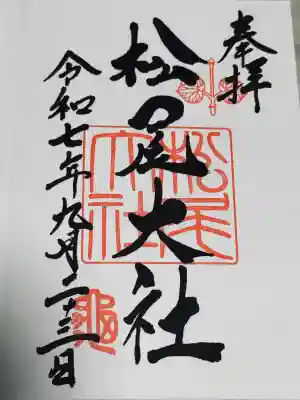 奉拝
松尾大社
令和七年九月二十三日
松尾大社